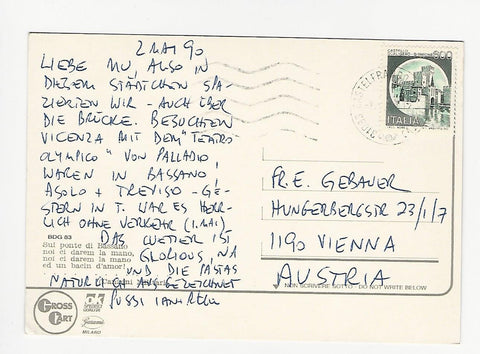 2 MAI 90
LIEBE MU, ALSO IN
DIESEM STÄDTCHEN SPA-
ZIERTEN WIR - AUCH ÜBER
DIE BRÜCKE. BESUCHTEN
VICENZA MIT DEM "TEATRO
OLYMPICO" VON PALLADIO,
WAREN IN BASSANO,
ASOLO + TREVISO - GE-
STERN IN T. WAR ES HERR-
LICH OHNE VERKEHR (1. MAI)
DAS WETTER IST
GLORIOUS, NA
UND DIE PASTAS
NATÜRLICH AUSGEZEICHNET
BUSSI
BDG 83
Sul ponte di Bassano
noi ci darem la mano,
noi ci darem la mano
ed un bacin d'amor!
GROSS
CART
MILANO
600
ITALIA
FR. E. GEBAUER
HUNGERBERGSTR 23/1/7
1190 VIENNA
AUSTRIA
NON SCRIVERE SOTTO - DO NOT WRITE BELOW